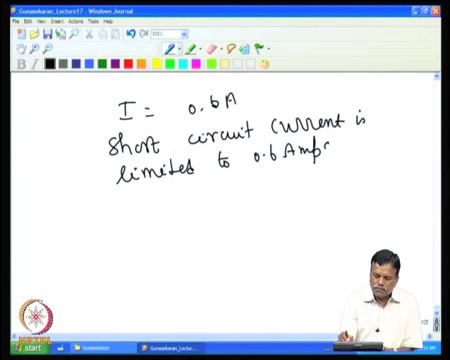 Gunasekaran_Lecture17 - Windows Journal
File Edit View Insert Actions Tools Help
100%
I = 0.6A
Short circuit current is
limited to 0.6Amp
NPTEL
start
Gunasekaran
Gunasekaran_Lec...